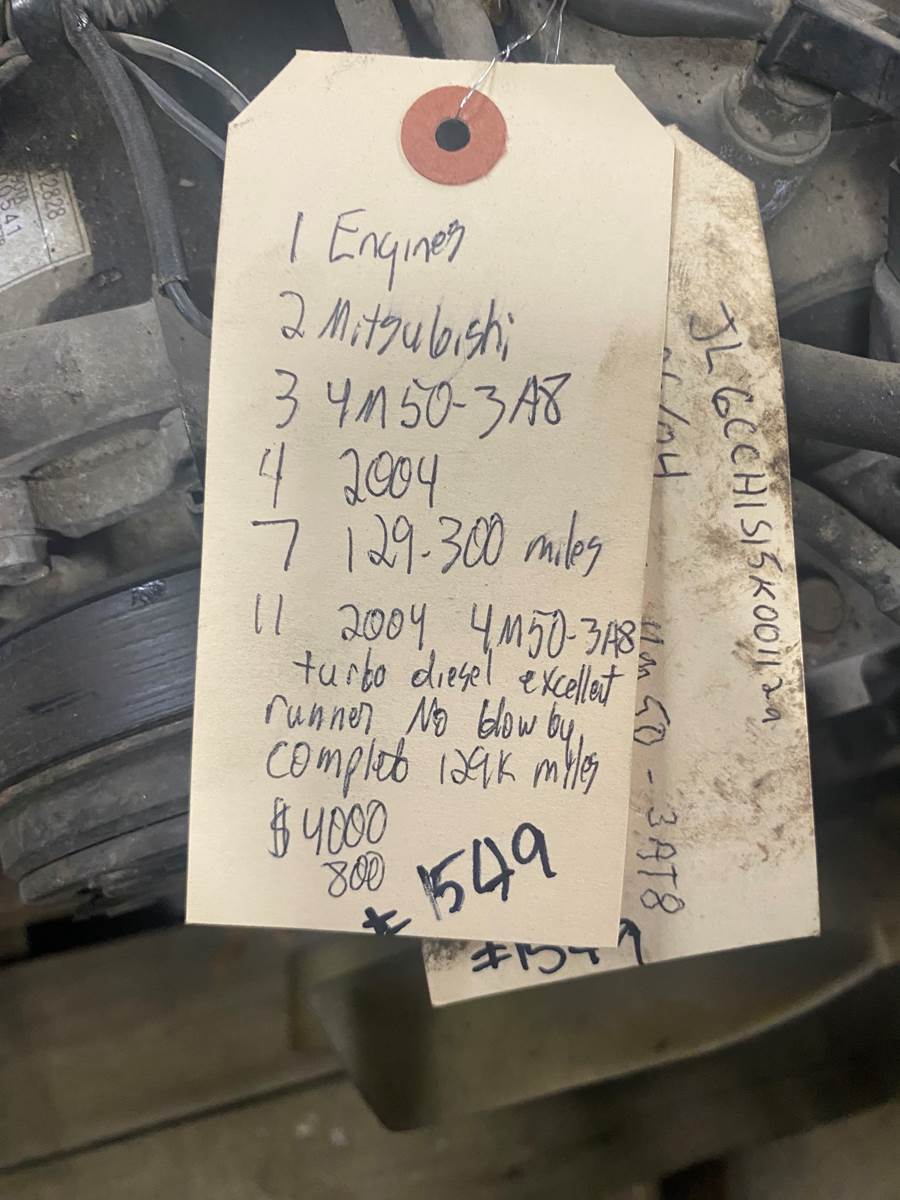 1 Engines
2 Mitsubishi
3 4M50-3A8
4 2004
7 129-300 miles
11 2004 4M50-3A8
turbo diesel excellent
runner No blow by
complet 129K miles
$4000
800
#1549
JL6CCH1S15K001129
4m50-3AT8
#1549
2828
0541